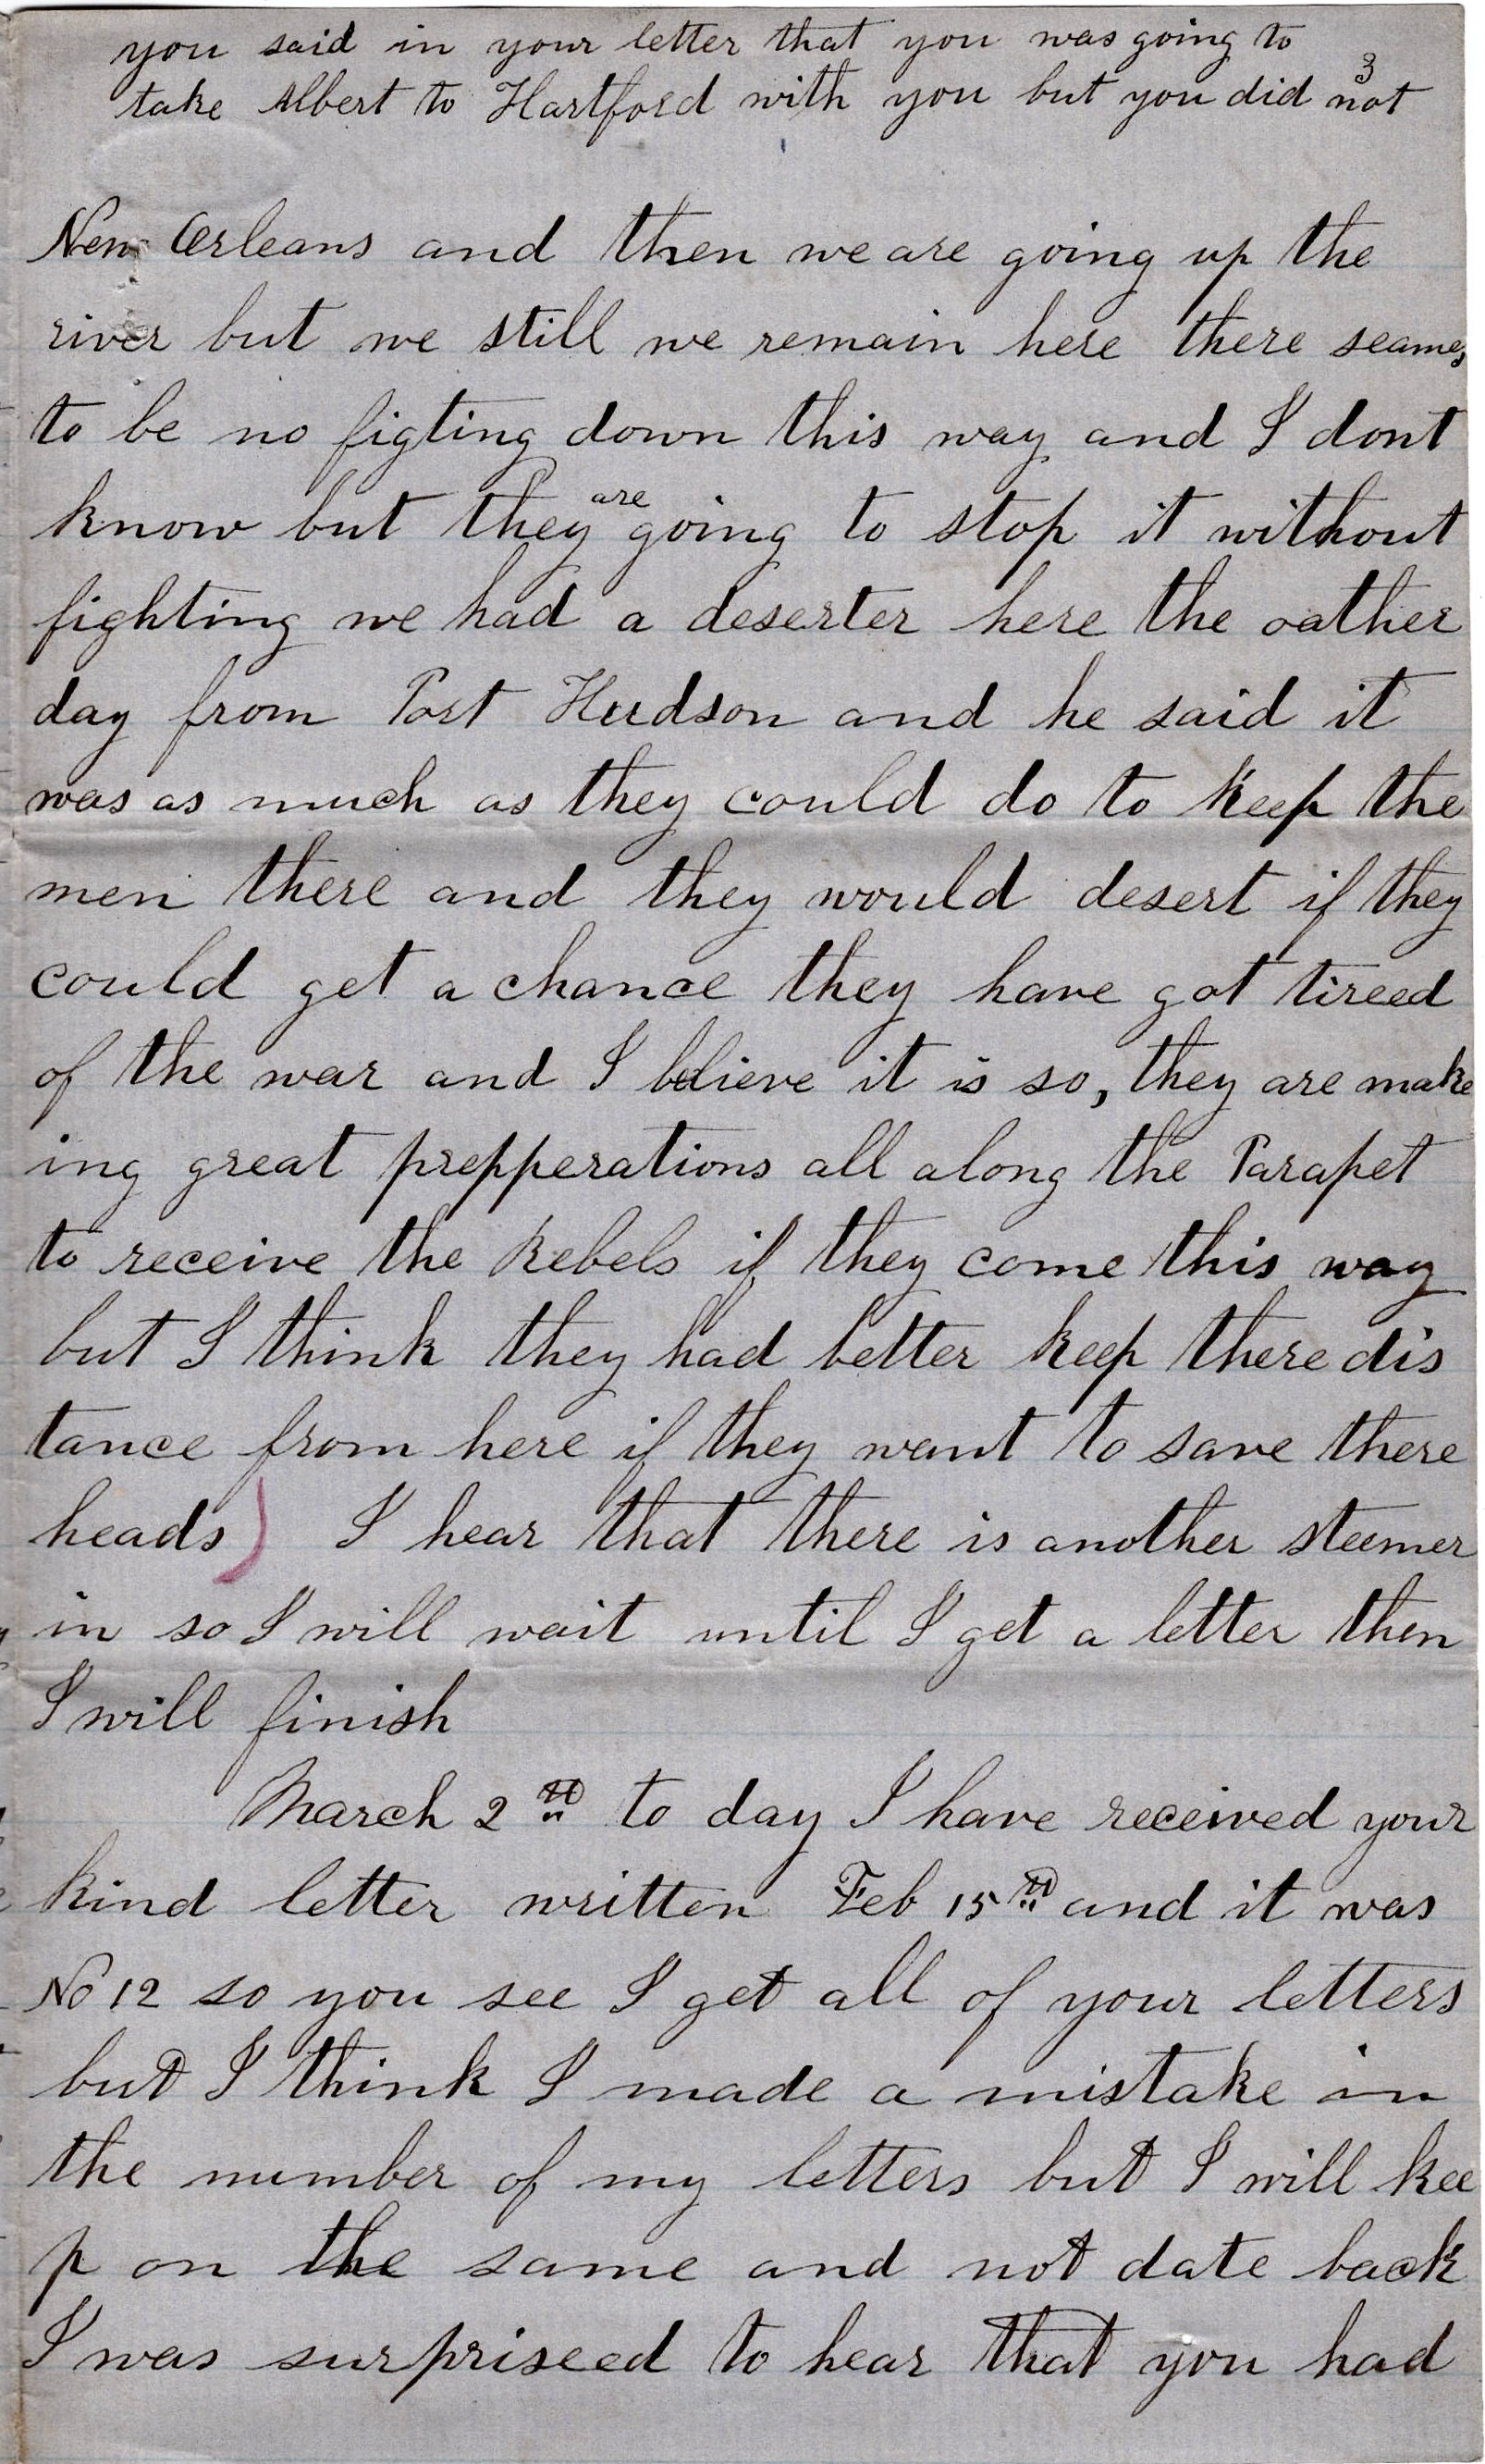 you said in your letter that you was going to
3
take Albert to Hartford with you but you did not
New Orleans and then we are going up the
river but we still we remain here there seames
to be no figting down this way and I dont
know but they are going to stop it without
fighting we had a deserter here the oather
day from Port Hudson and he said it
was as much as they could do to keep the
men there and they would desert if they
could get a chance they have got tireed
of the war and I blieve it is so, they are make
ing great prepperations all along the Parapet
to receive the Rebels if they come this way
but I think they had better keep there dis
tance from here if they want to save there
heads) I hear that there is another steemer
in so I will wait until I get a letter then
I will finish
March 2th to day I have received your
kind letter written Feb 15th and it was
No 12 so you see I get all of your letters
but I think I made a mistake in
the number of my letters but I will kee
p on the same and not date back
I was surpriseed to hear that you had